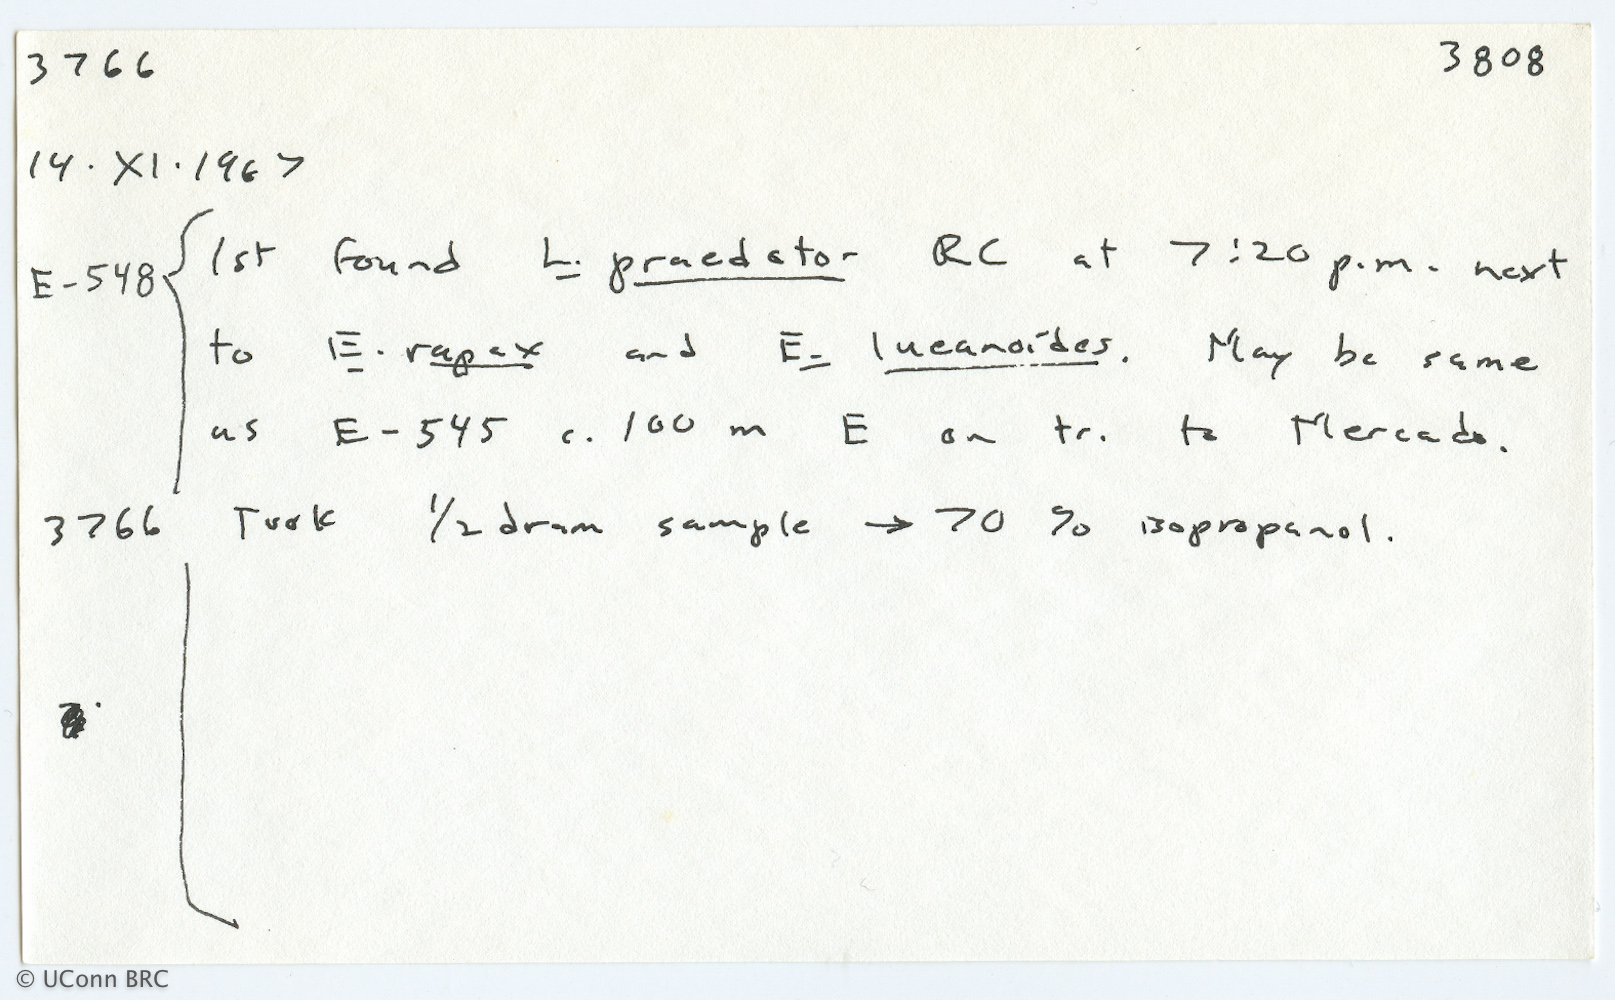 3766 3808
14.XI.1967
E-548 1st found L. praedator RC at 7:20 p.m. next
to E. rapax and E. lucanoides. May be same
as E-545 c. 100 m E on tr. to Mercado.
3766 Took 1/2 dram sample → 70 % isopropanol.
© UConn BRC